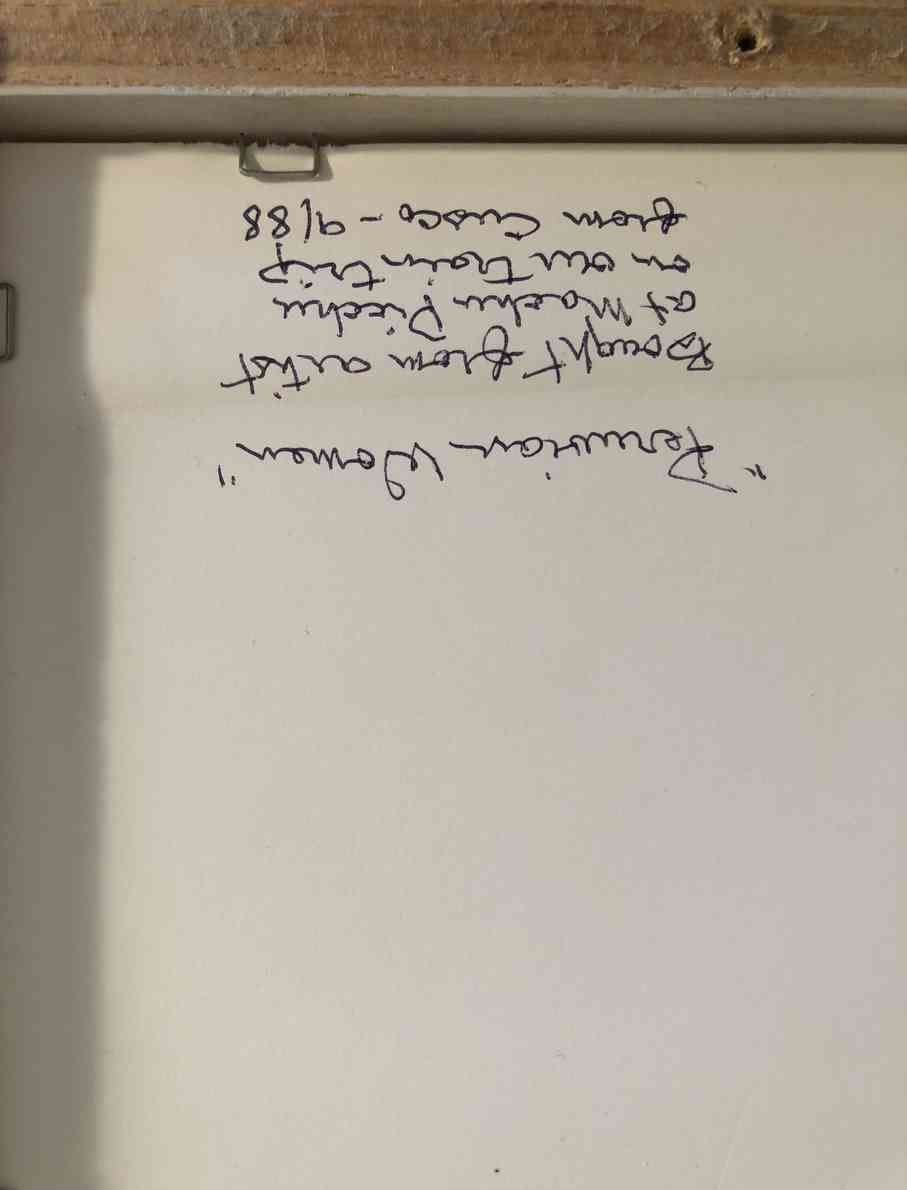 "Peruvian Women"
Bought from artist
at Macchu Picchu
on our train trip
from Cusco - 9/88